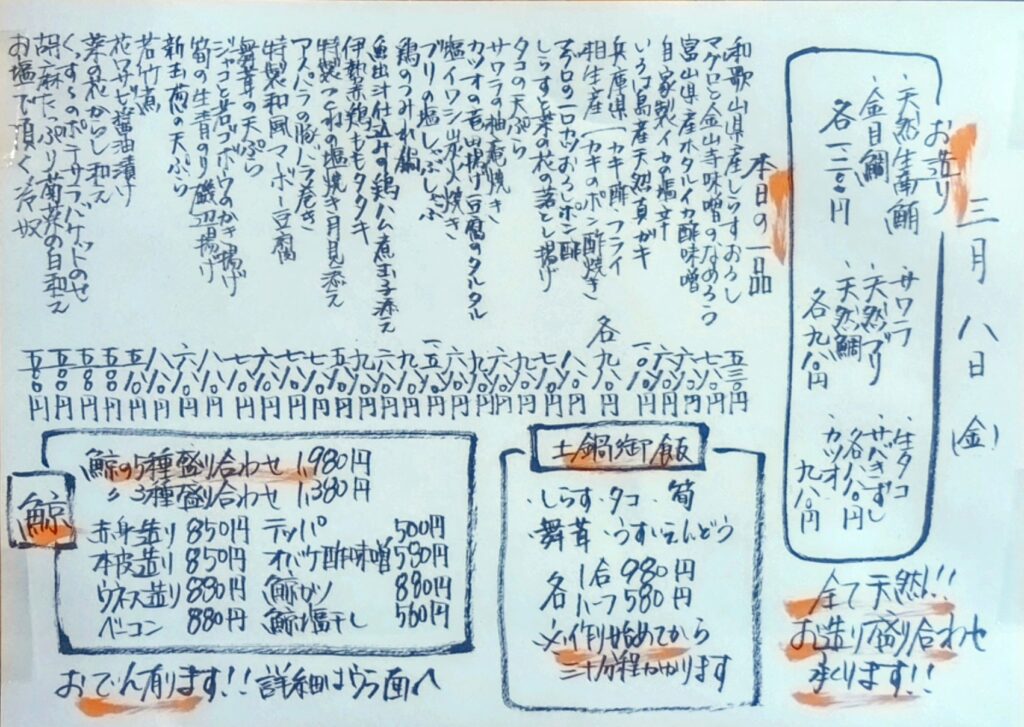 三月八日(金)
お造り
・天然生南鮪
・金目鯛
各一二八〇円
・サワラ
・天然ブリ
・天然鯛
各九八〇円
・生タコ
・サバきずし
各八八〇円
・カツオ
九八〇円
全て天然!!
お造り盛り合わせ
承ります!!
本日の一品
和歌山県産しらすおろし
マグロと金山寺味噌のなめろう
富山県産ホタルイカ酢味噌
自家製イカの塩辛
いろは島産天然真ガキ
兵庫県(カキ酢・フライ
相生産(カキのポン酢焼き
各九八〇円
マグロの一口カツおろしポン酢
しらすと菜の花の落とし揚げ
タコの天ぷら
サワラの柚庵焼き
カツオの竜田揚げ豆腐のタルタル
塩イワシ炭火焼き
ブリの塩しゃぶしゃぶ
鶏のつみれ鍋
魚出汁仕込みの鶏ハム煮玉子添え
伊勢赤鶏ももタタキ
特製つくねの塩焼き月見添え
アスパラの豚バラ巻き
特製和風マーボー豆腐
舞茸の天ぷら
ジャコと岩ゴボウのかき揚げ
筍の生青のり磯辺揚げ
新玉葱の天ぷら
若竹煮
花ワサビ醤油漬け
菜の花からし和え
くんすーのポテサラバゲットのせ
胡麻たっぷり菊菜の白和え
お塩で頂く冷奴
土鍋御飯
・しらす・タコ・筍
・舞茸・うすいえんどう
各
1合980円
ハーフ580円
※作り始めてから
三十分程かかります
鯨
鯨の5種盛り合わせ 1,980円
〃3種盛り合わせ 1,380円
赤身造り 850円 テッパ 500円
本皮造り 850円 オバケ酢味噌 580円
ウネス造り 880円 鯨カツ 880円
ベーコン 880円 鯨塩干し 560円
おでん有ります!!詳細はウラ面へ